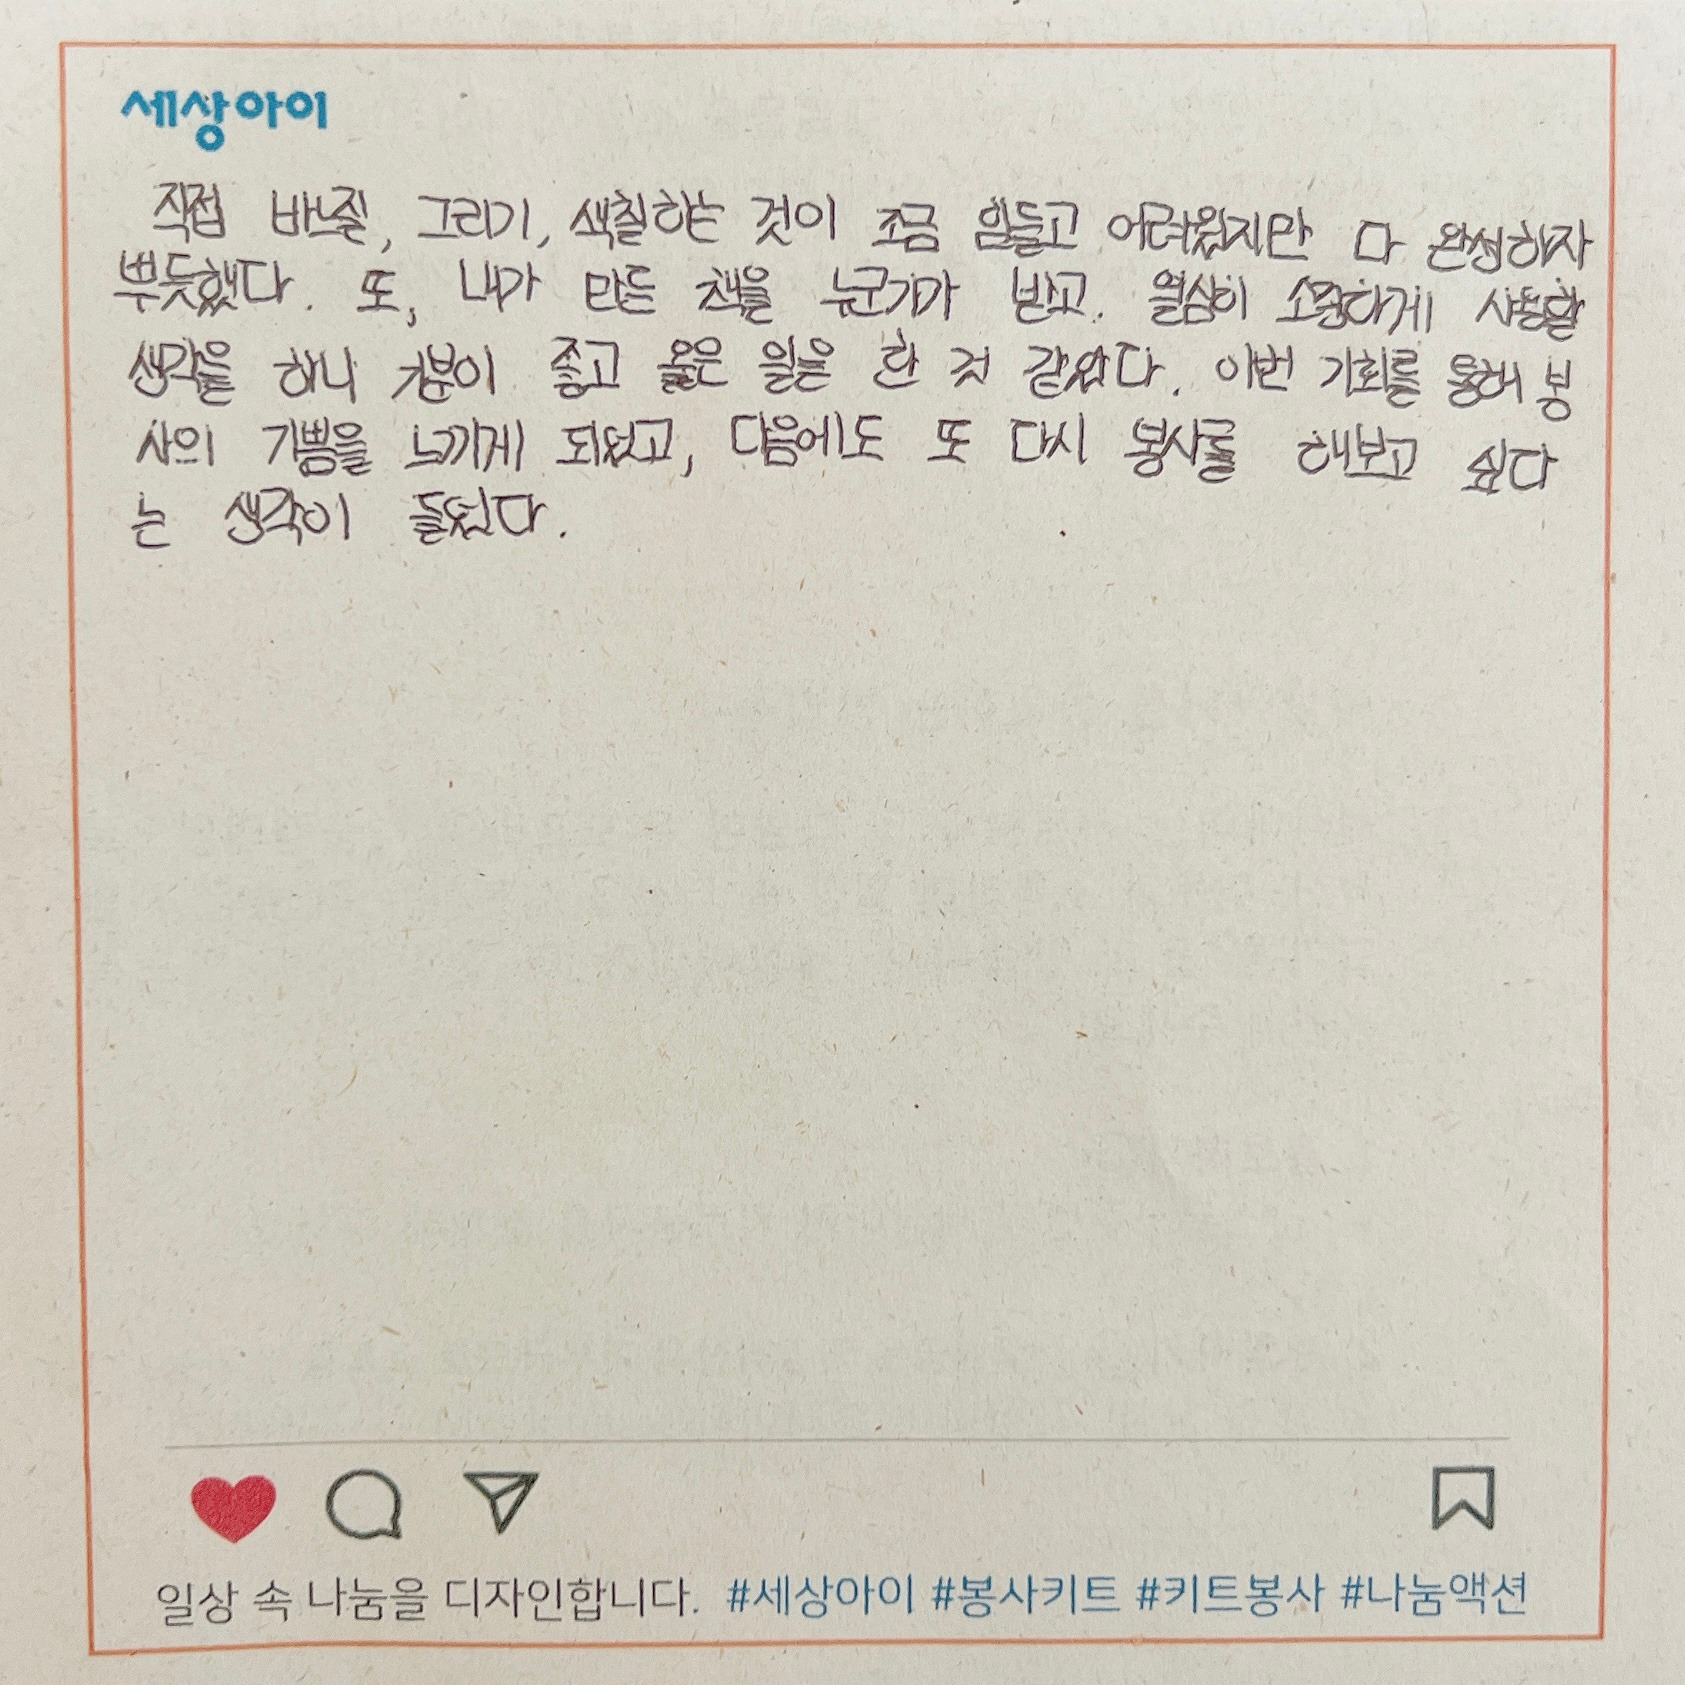 세상아이
직접 바느질, 그리기, 색칠하는 것이 조금 힘들고 어려웠지만 다 완성하자
뿌듯했다. 또, 내가 만든 책을 누군가가 받고. 열심이 소중하게 사용할
생각을 하니 기분이 좋고 옳은 일을 한 것 같았다. 이번 기회를 통해 봉
사의 기쁨을 느끼게 되었고, 다음에도 또 다시 봉사를 해보고 싶다
는 생각이 들었다.
일상 속 나눔을 디자인합니다. #세상아이 #봉사키트 #키트봉사 #나눔액션